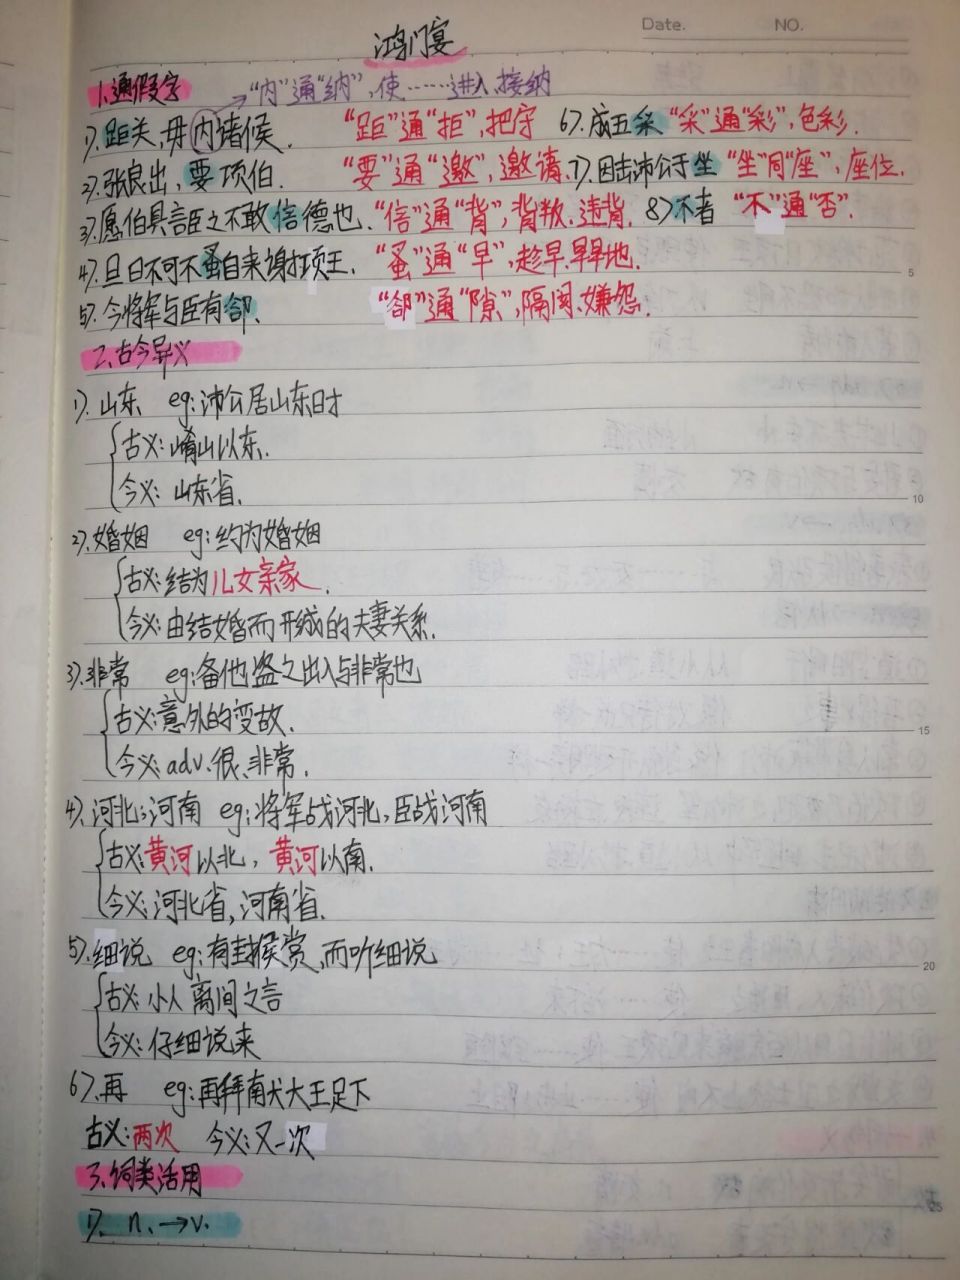 Date. NO.
鸿门宴
1.通假字 "内"通"纳",使……进入,接纳
1).距关,毋内诸侯. "距"通"拒",把守 6).成五采 "采"通"彩",色彩.
2).张良出,要项伯. "要"通"邀",邀请. 7).因击沛公于坐 "坐"同"座",座位.
3).愿伯具言臣之不敢倍德也. "倍"通"背",背叛.违背. 8)不者 "不"通"否".
4).旦日不可不蚤自来谢项王. "蚤"通"早",趁早.早早地.
5).今将军与臣有郤. "郤"通"隙",隔阂.嫌怨.
2.古今异义
1).山东 eg:沛公居山东时
古义:崤山以东.
今义:山东省.
2).婚姻 eg:约为婚姻
古义:结为儿女亲家.
今义:由结婚而形成的夫妻关系.
3).非常 eg:备他盗之出入与非常也
古义:意外的变故.
今义:adv.很、非常.
4).河北;河南 eg:将军战河北,臣战河南
古义:黄河以北,黄河以南.
今义:河北省,河南省.
5).细说 eg:有封侯赏,而听细说
古义:小人离间之言
今义:仔细说来
6).再 eg:再拜大王足下
古义:两次 今义:又一次
3.词类活用
1). n.→v.
5
10
15
20
25